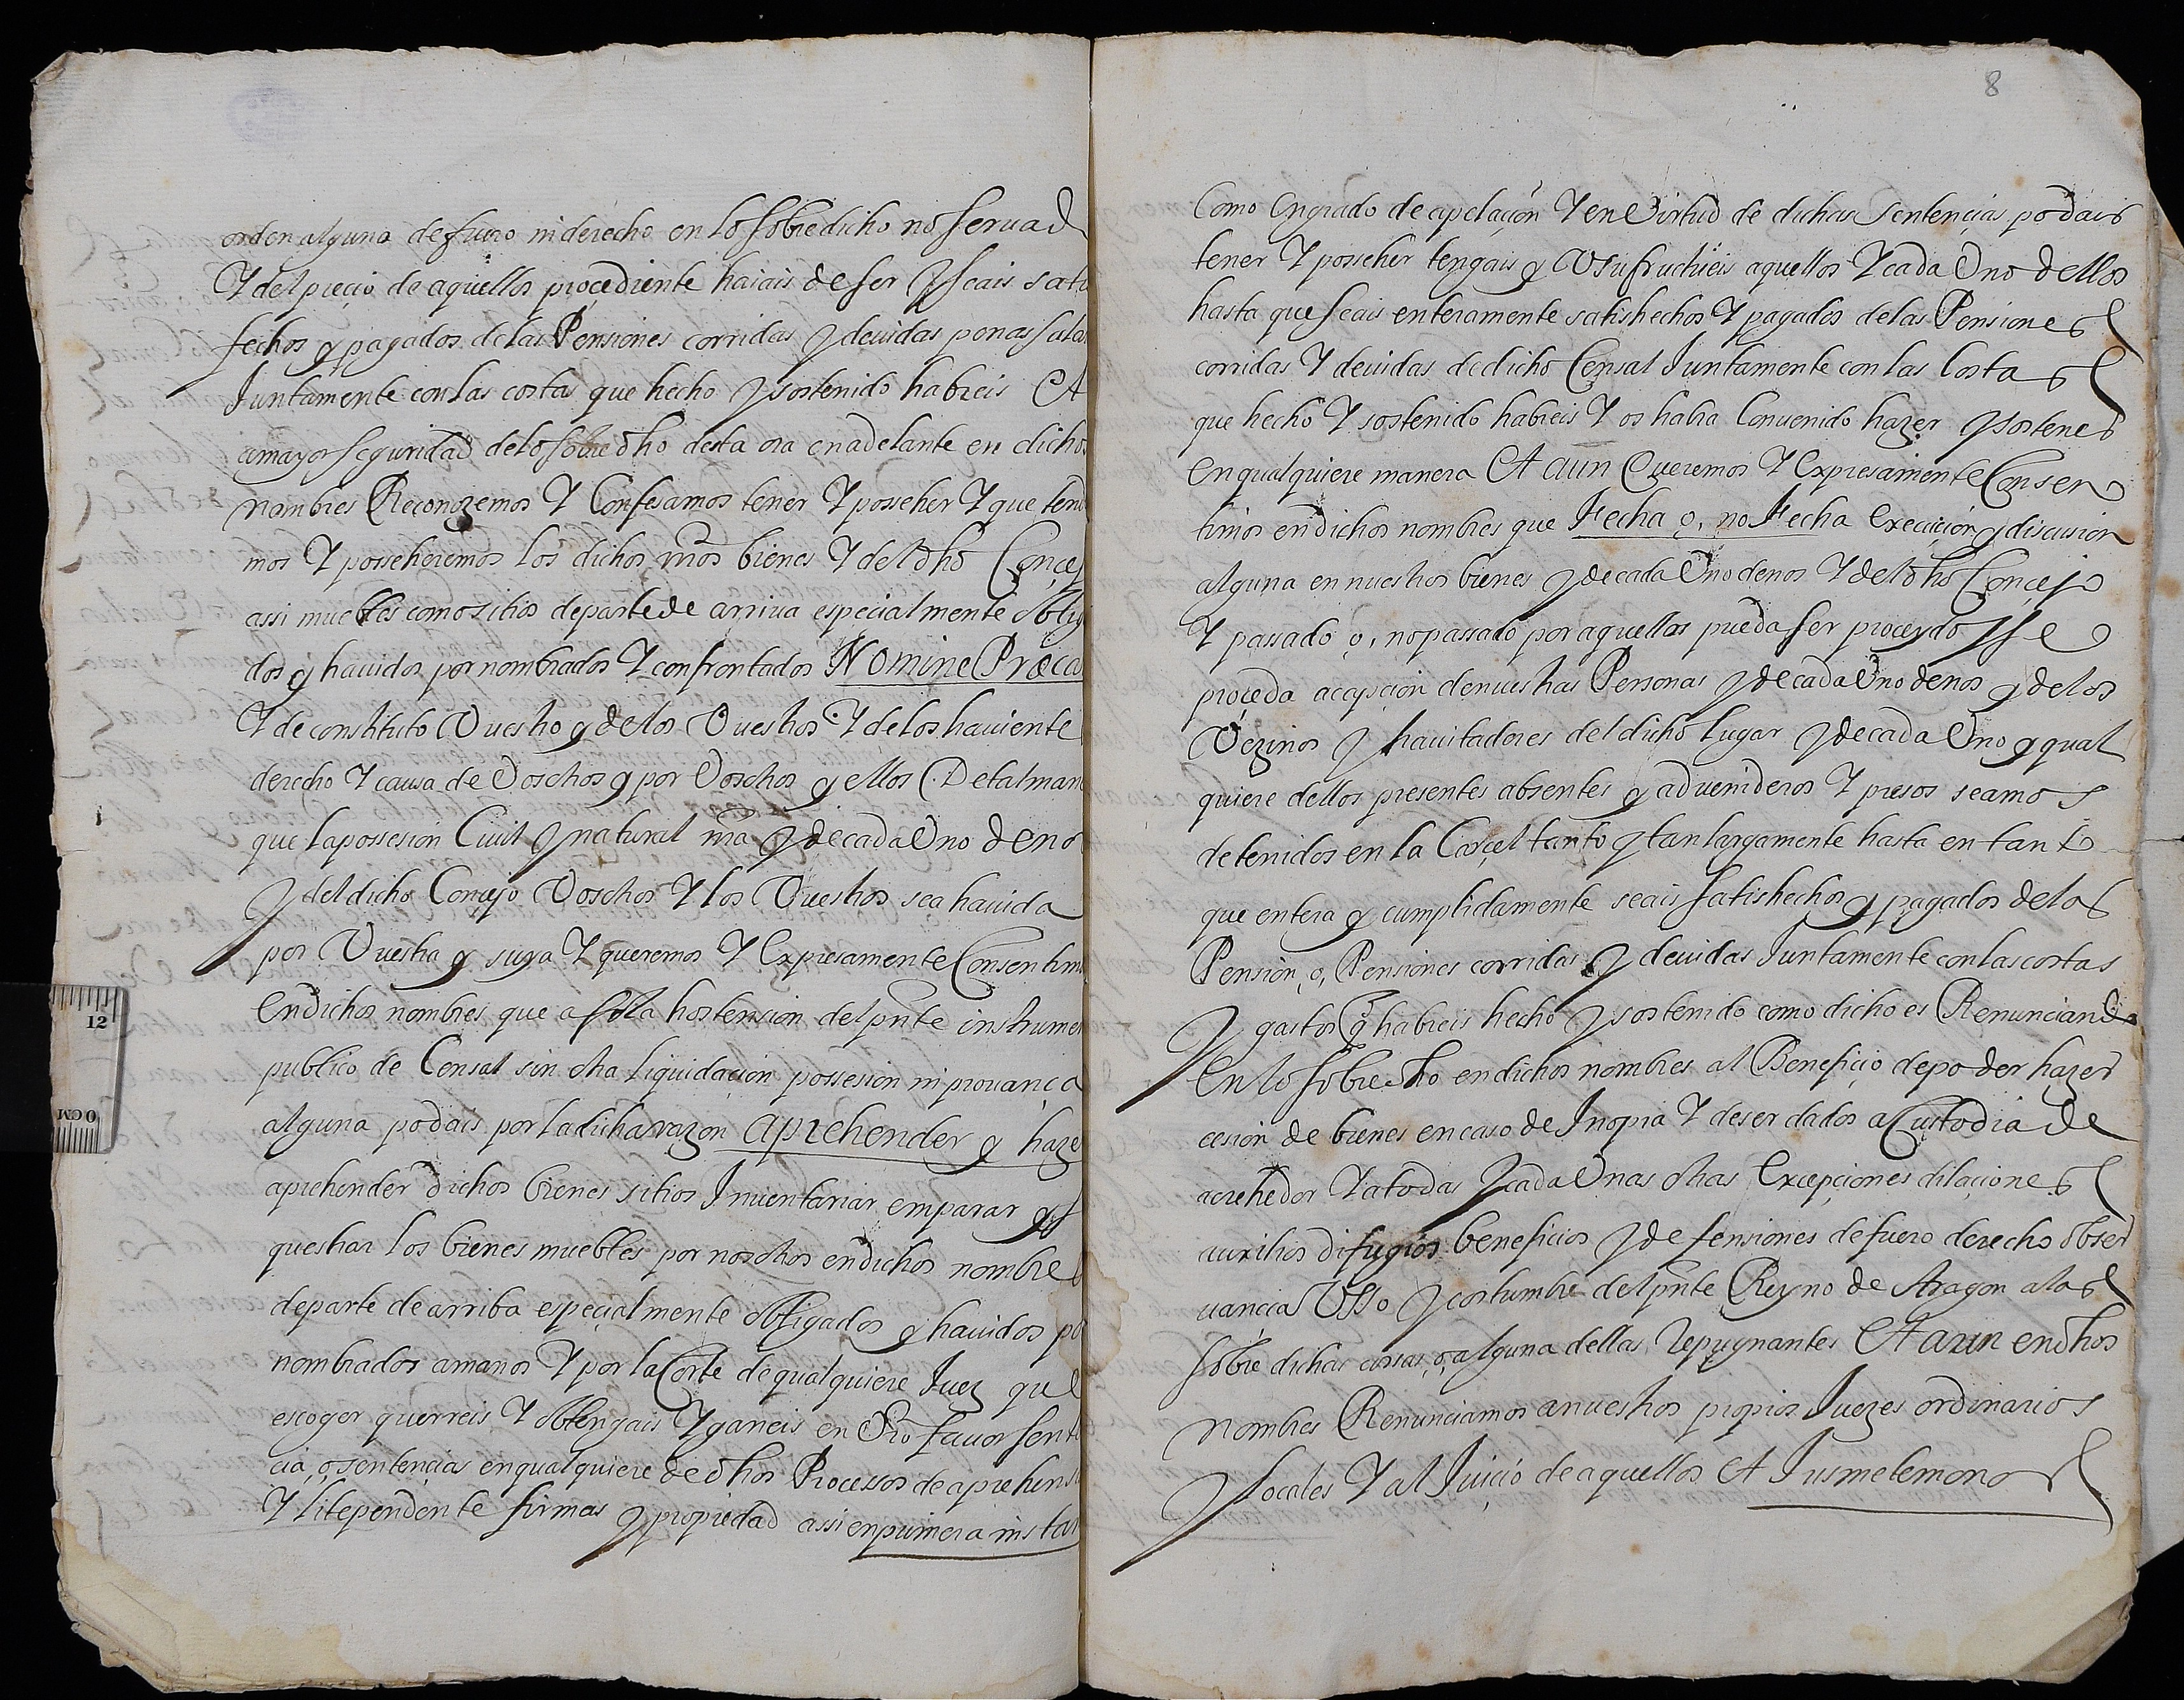 orden alguna de fuero ni derecho en lo sobredicho no seruad
Y del precio de aquellos procediente haiais de ser y seais satis
fechos y pagados de las Pensiones corridas y deuidas penas sala
Juntamente con las costas que hecho y sostenido habreis Et
a mayor seguridad de lo sobredho desta ora en adelante en dichos
nombres Reconozemos Y Confesamos tener Y posseher Y que tend
mos Y posseheremos los dichos nros bienes Y del dho Concej
assi muebles como sitios de parte de arriua especialmente oblig
dos y hauidos por nombrados Y confrontados Nomine Præca
Y de constituto Vuestro y de los Vuestros Y de los hauiente
derecho Y causa de Vosotros y por Vosotros y ellos De tal man
que la possesion Ciuil y natural nra y de cada Uno de nos
y del dicho Concejo Vosotros Y los Vuestros sea hauida
por Vuestra y suya Y queremos Y Expresamente Consentim
En dichos nombres que a sola hostension del pnte instrumen
publico de Censal sin otra liquidaçion possesion ni prouança
alguna podais por la dicha razon aprehender y haze
aprehender dichos bienes sitios Inuentariar emparar y s
questrar los bienes muebles por nosotros en dichos nombres
de parte de arriba espeçialmente obligados y hauidos po
nombrados a manos Y por la Corte de qualquiere Juez que
escoger querreis Y obtengais Y ganeis en Vro fauor sent
cia, o, sentençias en qualquiere de dhos Processos de aprehens
Y litependente firmas y propiedad assi en primera instan
8
Como En grado de apelaçion Y en Virtud de dichas Sentençias podais
tener Y posseher tengais y Usufructueis aquellos Y cada Uno dellos
hasta que seais enteramente satishechos Y pagados de las Pensiones
corridas Y deuidas de dicho Censal Juntamente con las Costas
que hecho Y sostenido habreis Y os habra Conuenido hazer y sostener
En qualquiere manera Et aun Queremos Y Expresamente Consen
timos en dichos nombres que Fecha o, no Fecha Execuçion y discusion
alguna en nuestros bienes y de cada Uno de nos Y del dho Concejo
Y passado o, no passado por aquellos pueda ser proceydo y se
proçeda a capçion de nuestras Personas y de cada Uno de nos y de los
Vezinos y hauitadores del dicho lugar y de cada Uno y qual
quiere dellos presentes absentes y aduenideros Y presos seamos
detenidos en la Carçel tanto y tan largamente hasta en tanto
que entera y cumplidamente seais satishechos y pagados de la
Pension, o, Pensiones corridas y deuidas Juntamente con las costas
y gastos q habreis hecho y sostenido como dicho es Renunciando
En lo sobredho en dichos nombres al Benefiçio de poder hazer
cesion de bienes en caso de Inopia Y de ser dados a Custodia de
acrehedor Y a todas y cada Unas otras Excepçiones dilaçiones
auxilios difugios beneficios y defensiones de fuero derecho obser
uancia Usso y costumbre del pnte Reyno de Aragon a las
sobre dichas cossas, o, alguna dellas Repugnantes Et aun en dhos
nombres Renunciamos a nuestros propios Juezes ordinarios
y locales Y al Juiçio de aquellos Et Jusmetemonos